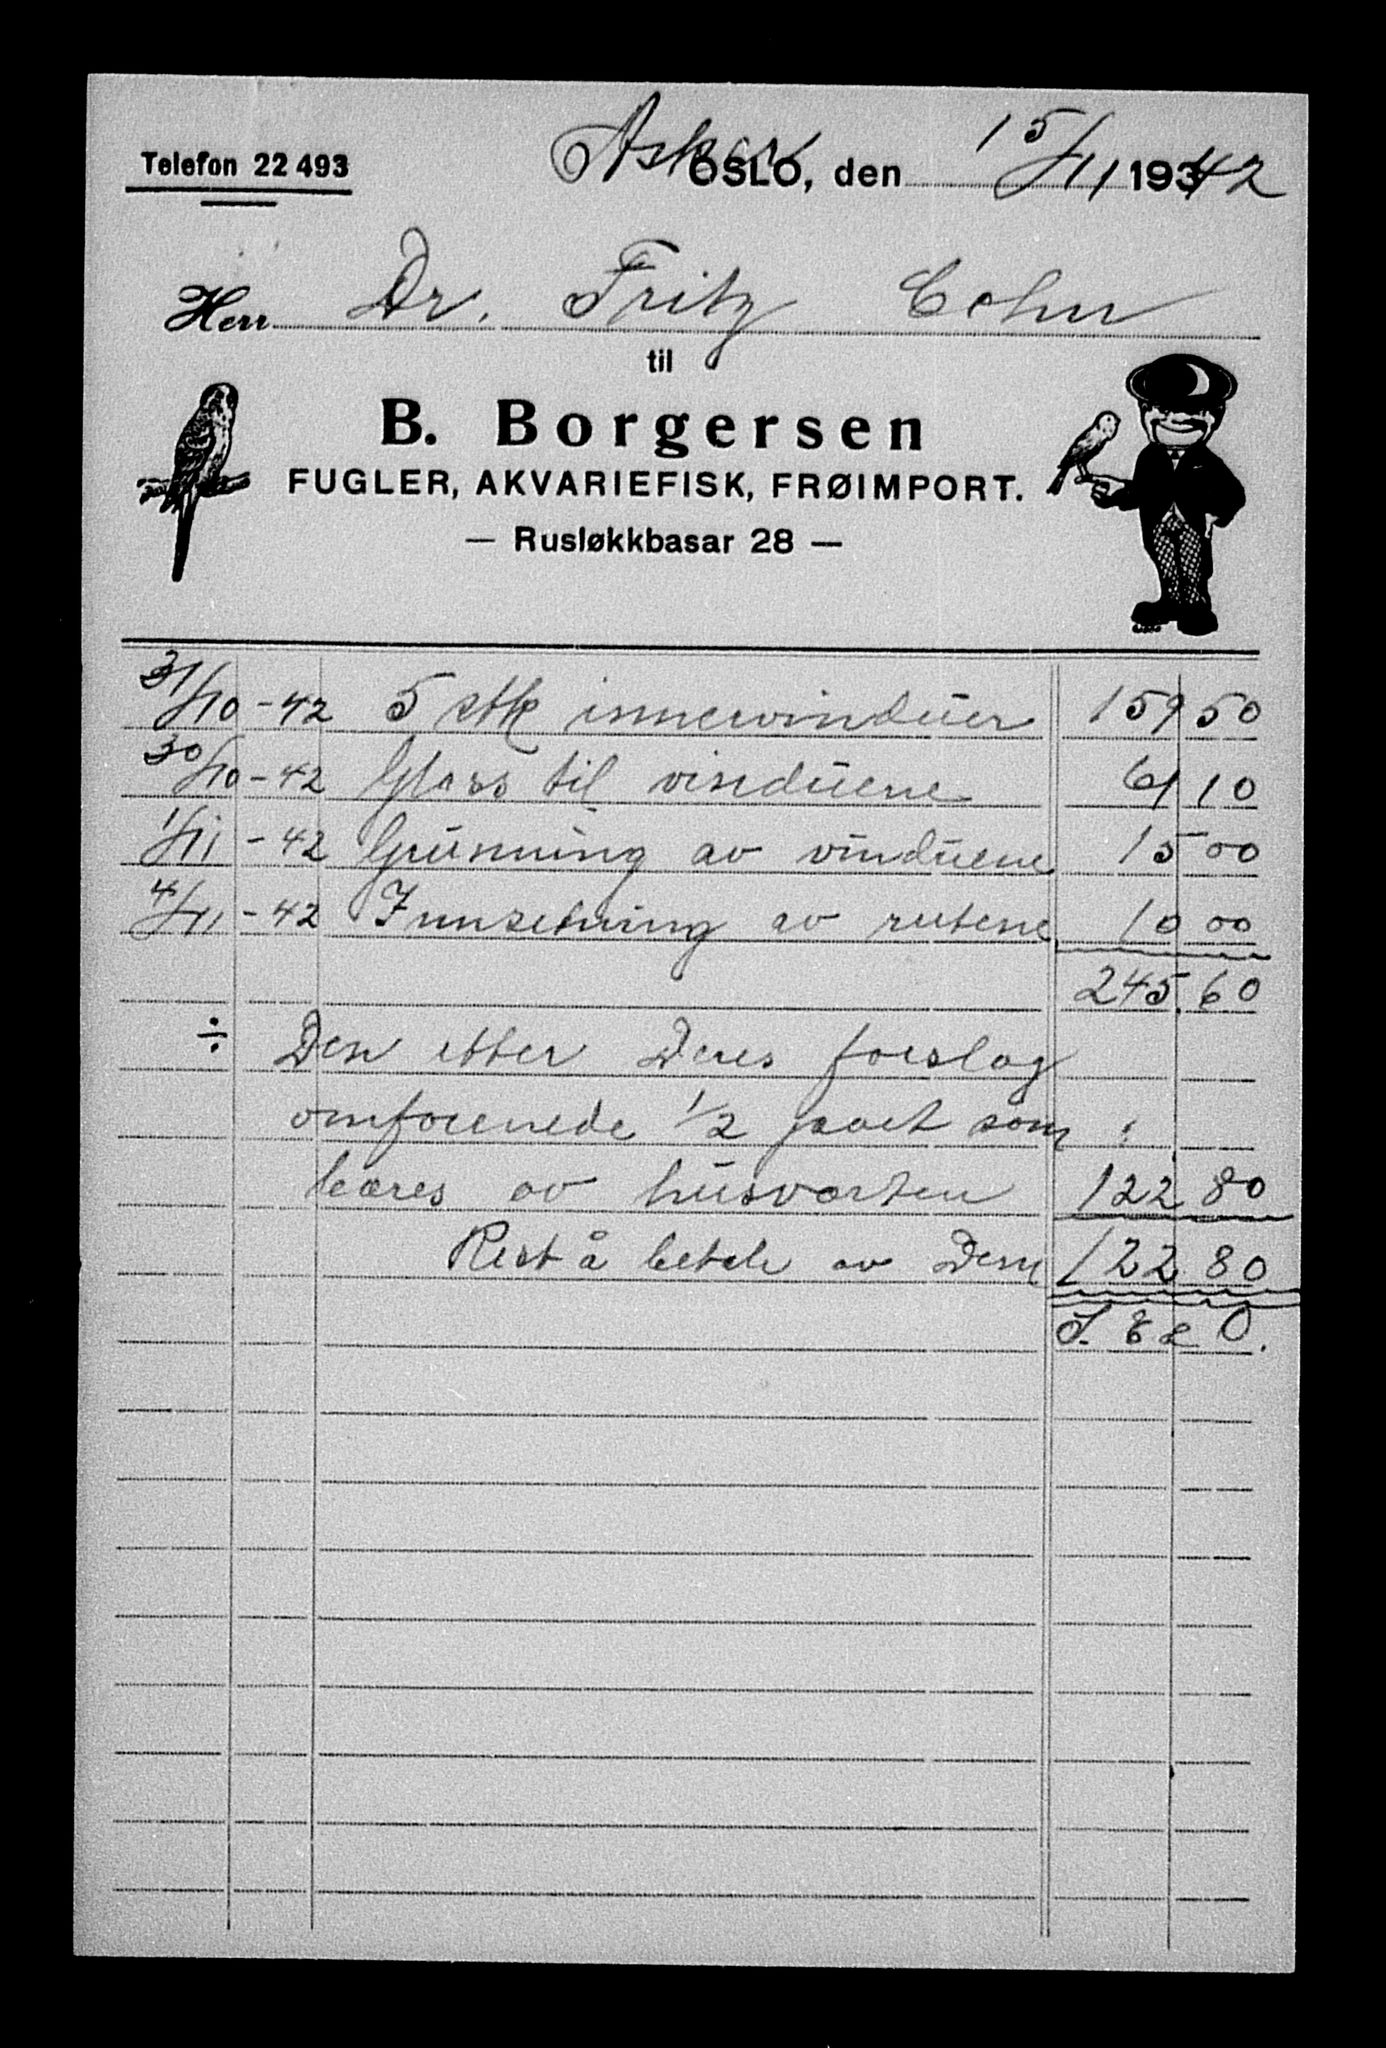 Telefon 22 493
Asker OSLO, den 15/11 1942
Herr Dr. Fritz Cohn
til
B. Borgersen
FUGLER, AKVARIEFISK, FRØIMPORT.
— Rusløkkbasar 28 —
31/10 - 42 5 stk innervinduer 159 50
30/10 - 42 Glass til vinduene 61 10
1/11 - 42 Grunning av vinduene 15 00
4/11 - 42 Innsetning av rutene 10 00
245.60
÷ Den etter Deres forslag
omforenede 1/2 part som
bæres av husverten 122 80
Rest å betale av Dem 122 80
S. E & O.